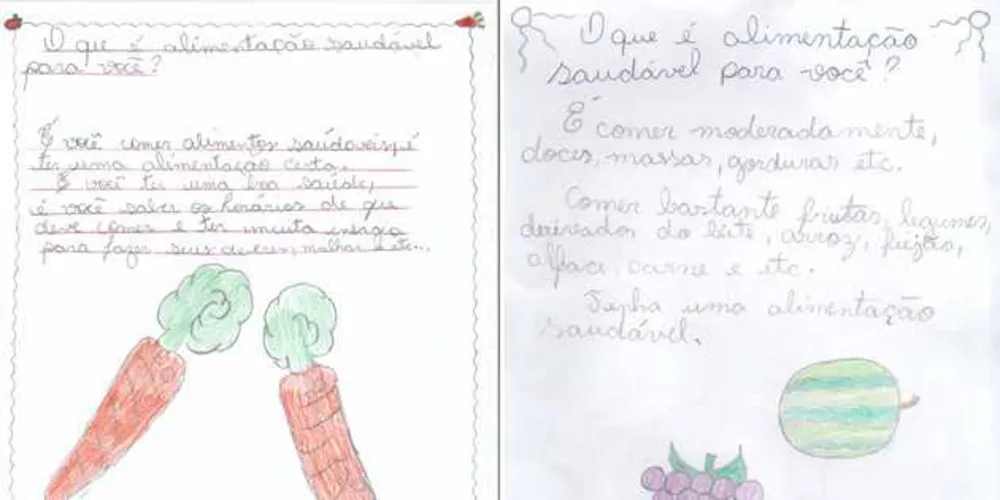 O que é alimentação saudável
para você?
É você comer alimentos saudáveis, é
ter uma alimentação certa.
É você ter uma boa saúde,
é você saber os horários de que
deve comer e ter muita energia
para fazer seus deveres, malhar e etc...
O que é alimentação
saudável para você?
É comer moderadamente,
doces, massas, gorduras etc.
Comer bastante frutas, legumes,
derivados do leite, arroz, feijão,
alface, carne e etc.
Tenha uma alimentação
saudável.